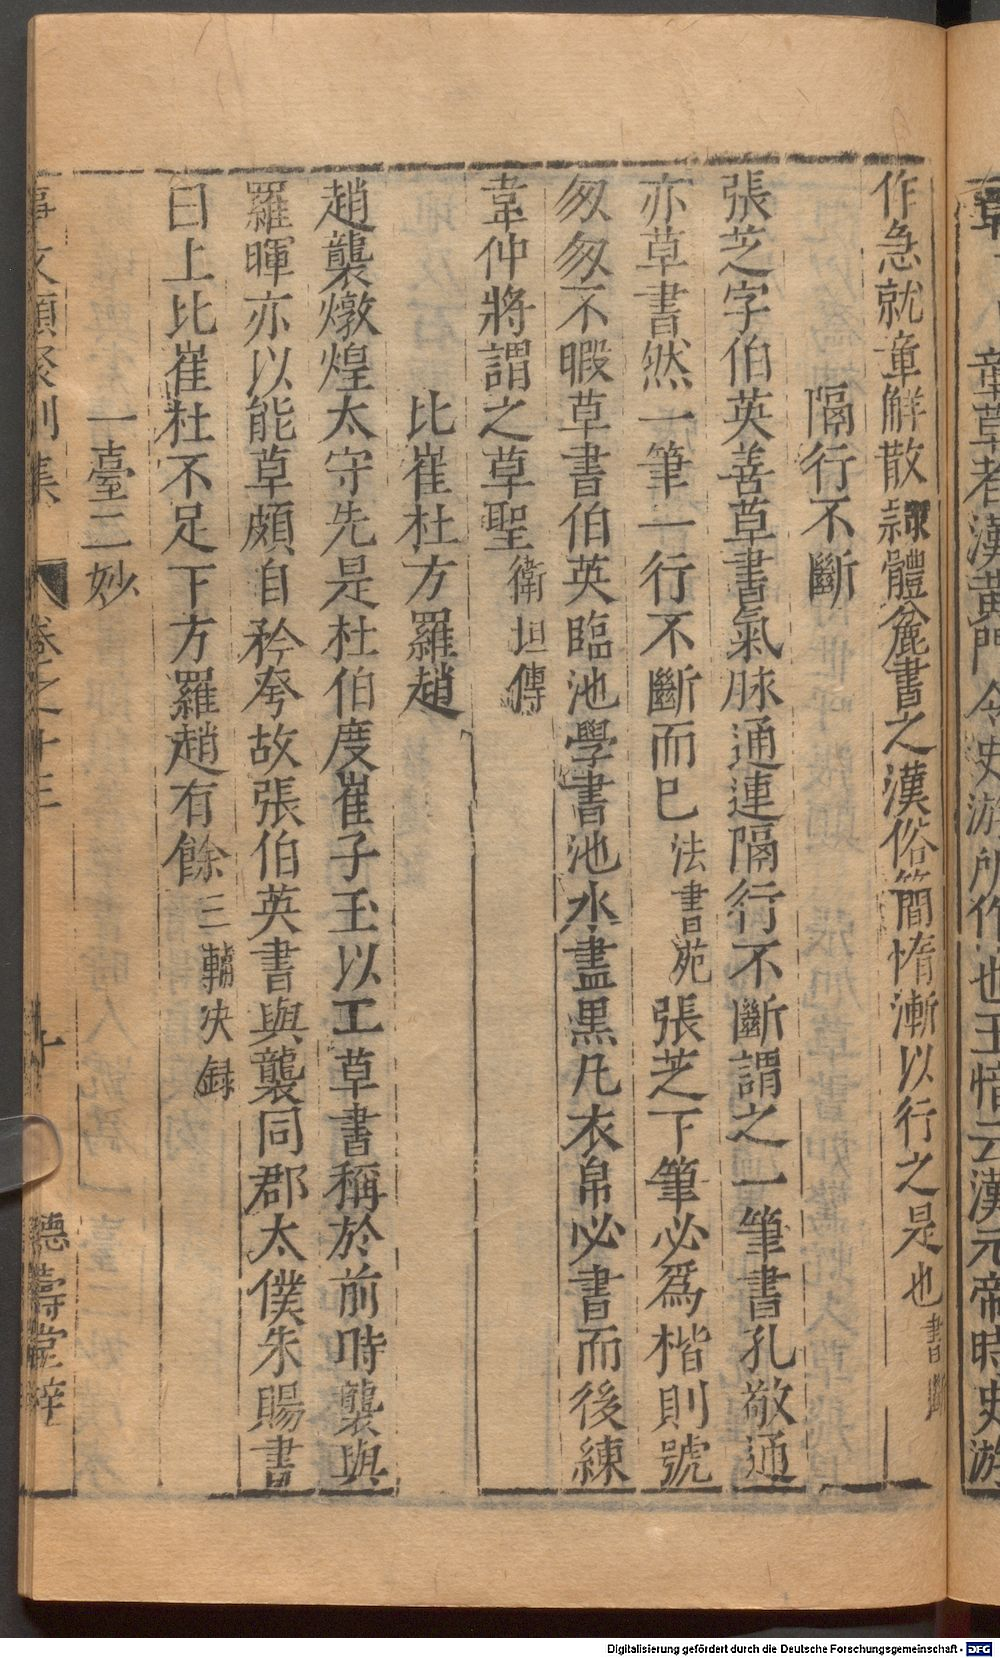 章草者漢黃門令史游所作也王愔云漢元帝時史游
作急就章解散隸體麄書之漢俗簡惰漸以行之是也書斷
隔行不斷
張芝字伯英善草書氣脉通連隔行不斷謂之一筆書孔敬通
亦草書然一筆一行不斷而已法書苑張芝下筆必爲楷則號
匆匆不暇草書伯英臨池學書池水盡黒凡衣帛必書而後練
韋仲將謂之草聖衛垣傳
比崔杜方羅趙
趙襲燉煌太守先是杜伯度崔子玉以工草書稱於前時襲與
羅暉亦以能草頗自矜夸故張伯英書與襲同郡太僕朱賜書
曰上比崔杜不足下方羅趙有餘三輔决録
一臺二妙
事文類聚別集 卷之十三 德壽堂梓
Digitalisierung gefördert durch die Deutsche Forschungsgemeinschaft - DFG